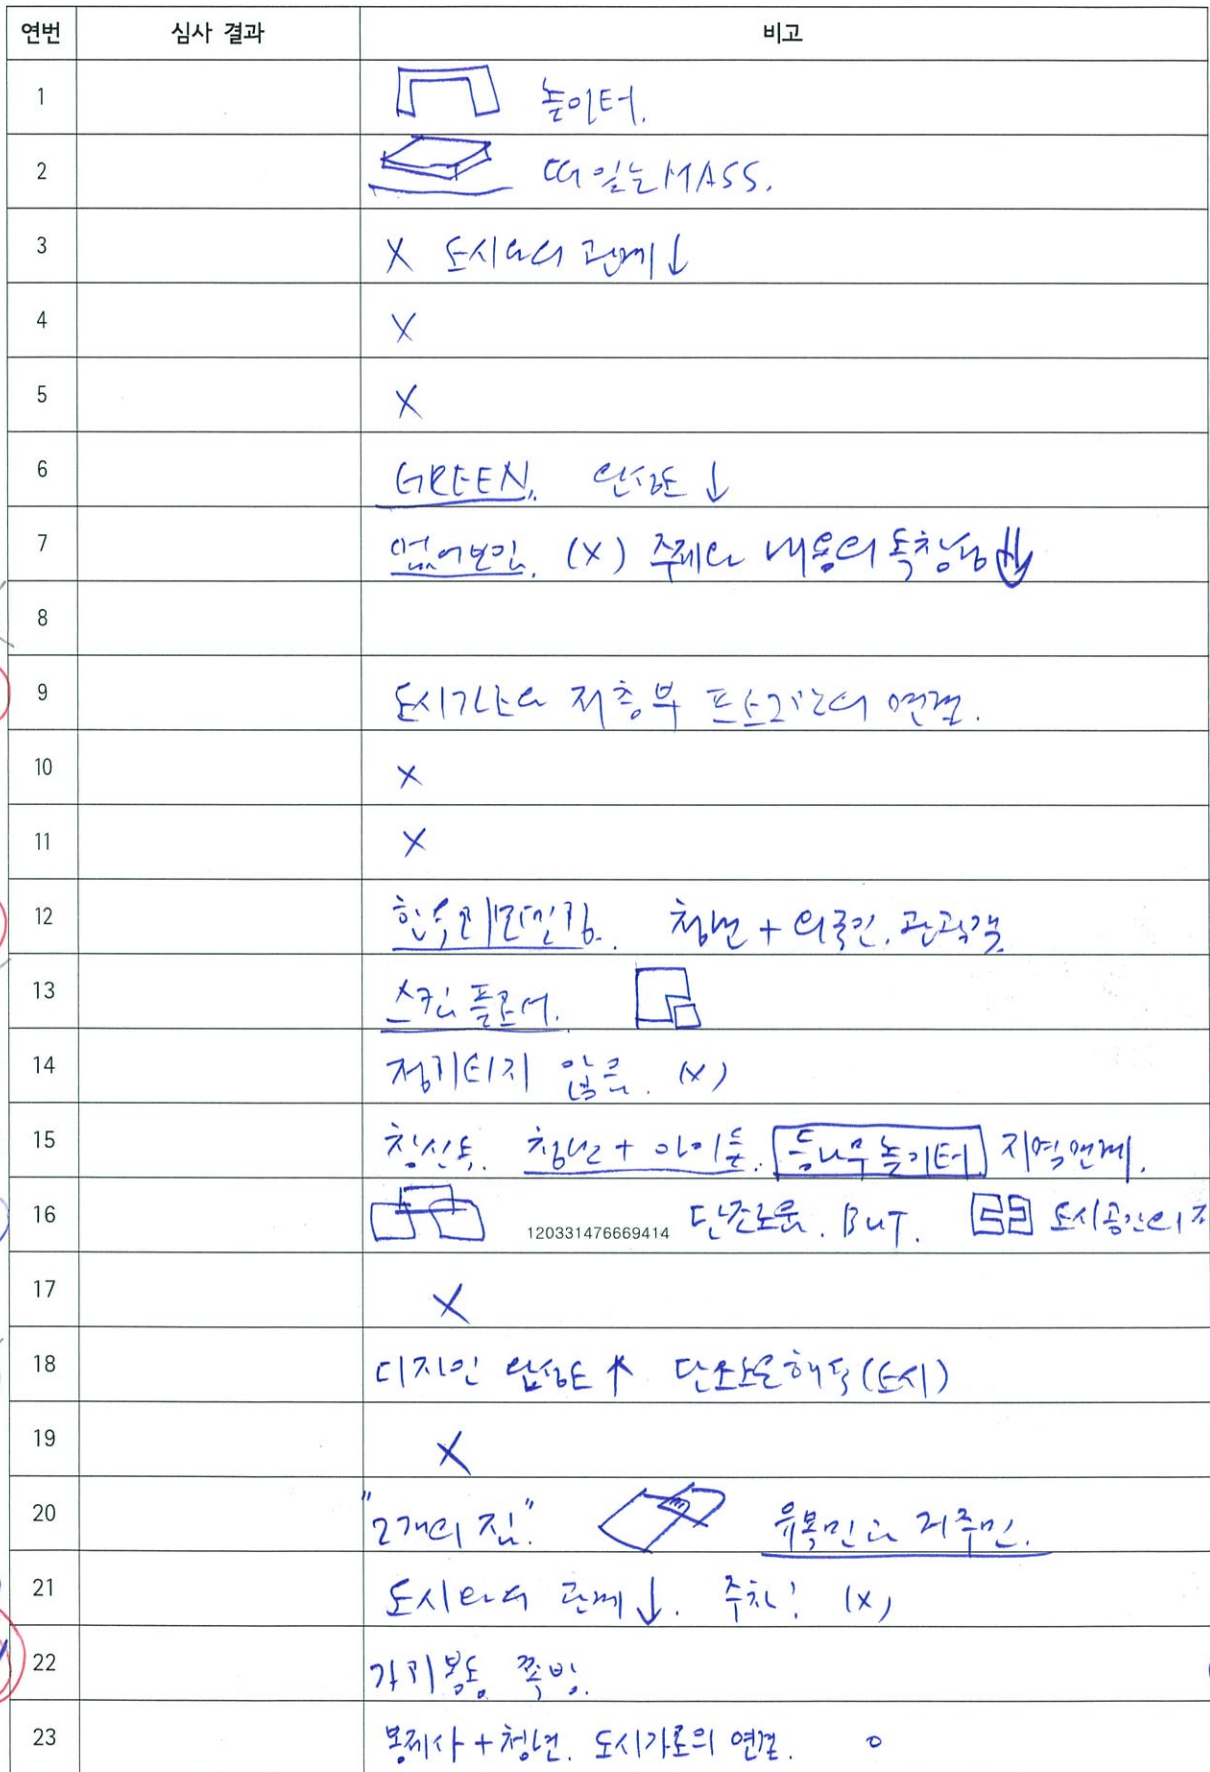 연번 심사 결과 비고
1 놀이터.
2 떠있는 MASS.
3 X 도시와의 관계↓
4 X
5 X
6 GREEN, 완성도 ↓
7 없어보임. (X) 주제와 내용의 독창성 ↓
8
9 도시가로와 저층부 의 연결.
10 X
11 X
12 청년 + 외국인, 관광객.
13 스킵 플로어.
14 정리되지 않음. (X)
15 창신동. 청년 + 아이들. 놀이터 지역연계.
16 120331476669414 단조로움. BUT. 도시공간의
17 X
18 디자인 완성도 ↑ 단조로움해독 (도시)
19 X
20 "2개의 집." 유목민과 거주민.
21 도시와의 관계↓. 주차! (X)
22 가리봉동 쪽방.
23 봉제사 + 청년. 도시가로의 연결. o